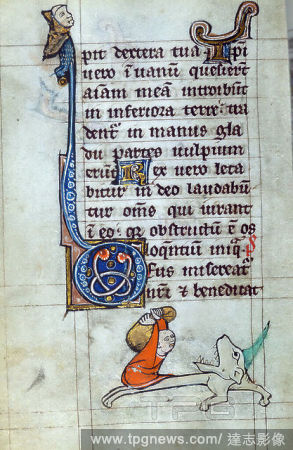 pit dextera tua Ip̃i
uero ĩ uanũ quesier̃t
aĩam meã introibũt
in inferiora terre: tra
dent᷑ in manus gla
dii partes uulpium
erũt Rex uero leta
bitur in deo laudabũ
tur om̃s qui iurant
ĩ eo: qr̃ obstructũ ẽ os
loqentiũ iniq̃
Deus misereat᷑
nr̃i & benedicat
www.tpgnews.com / 達志影像